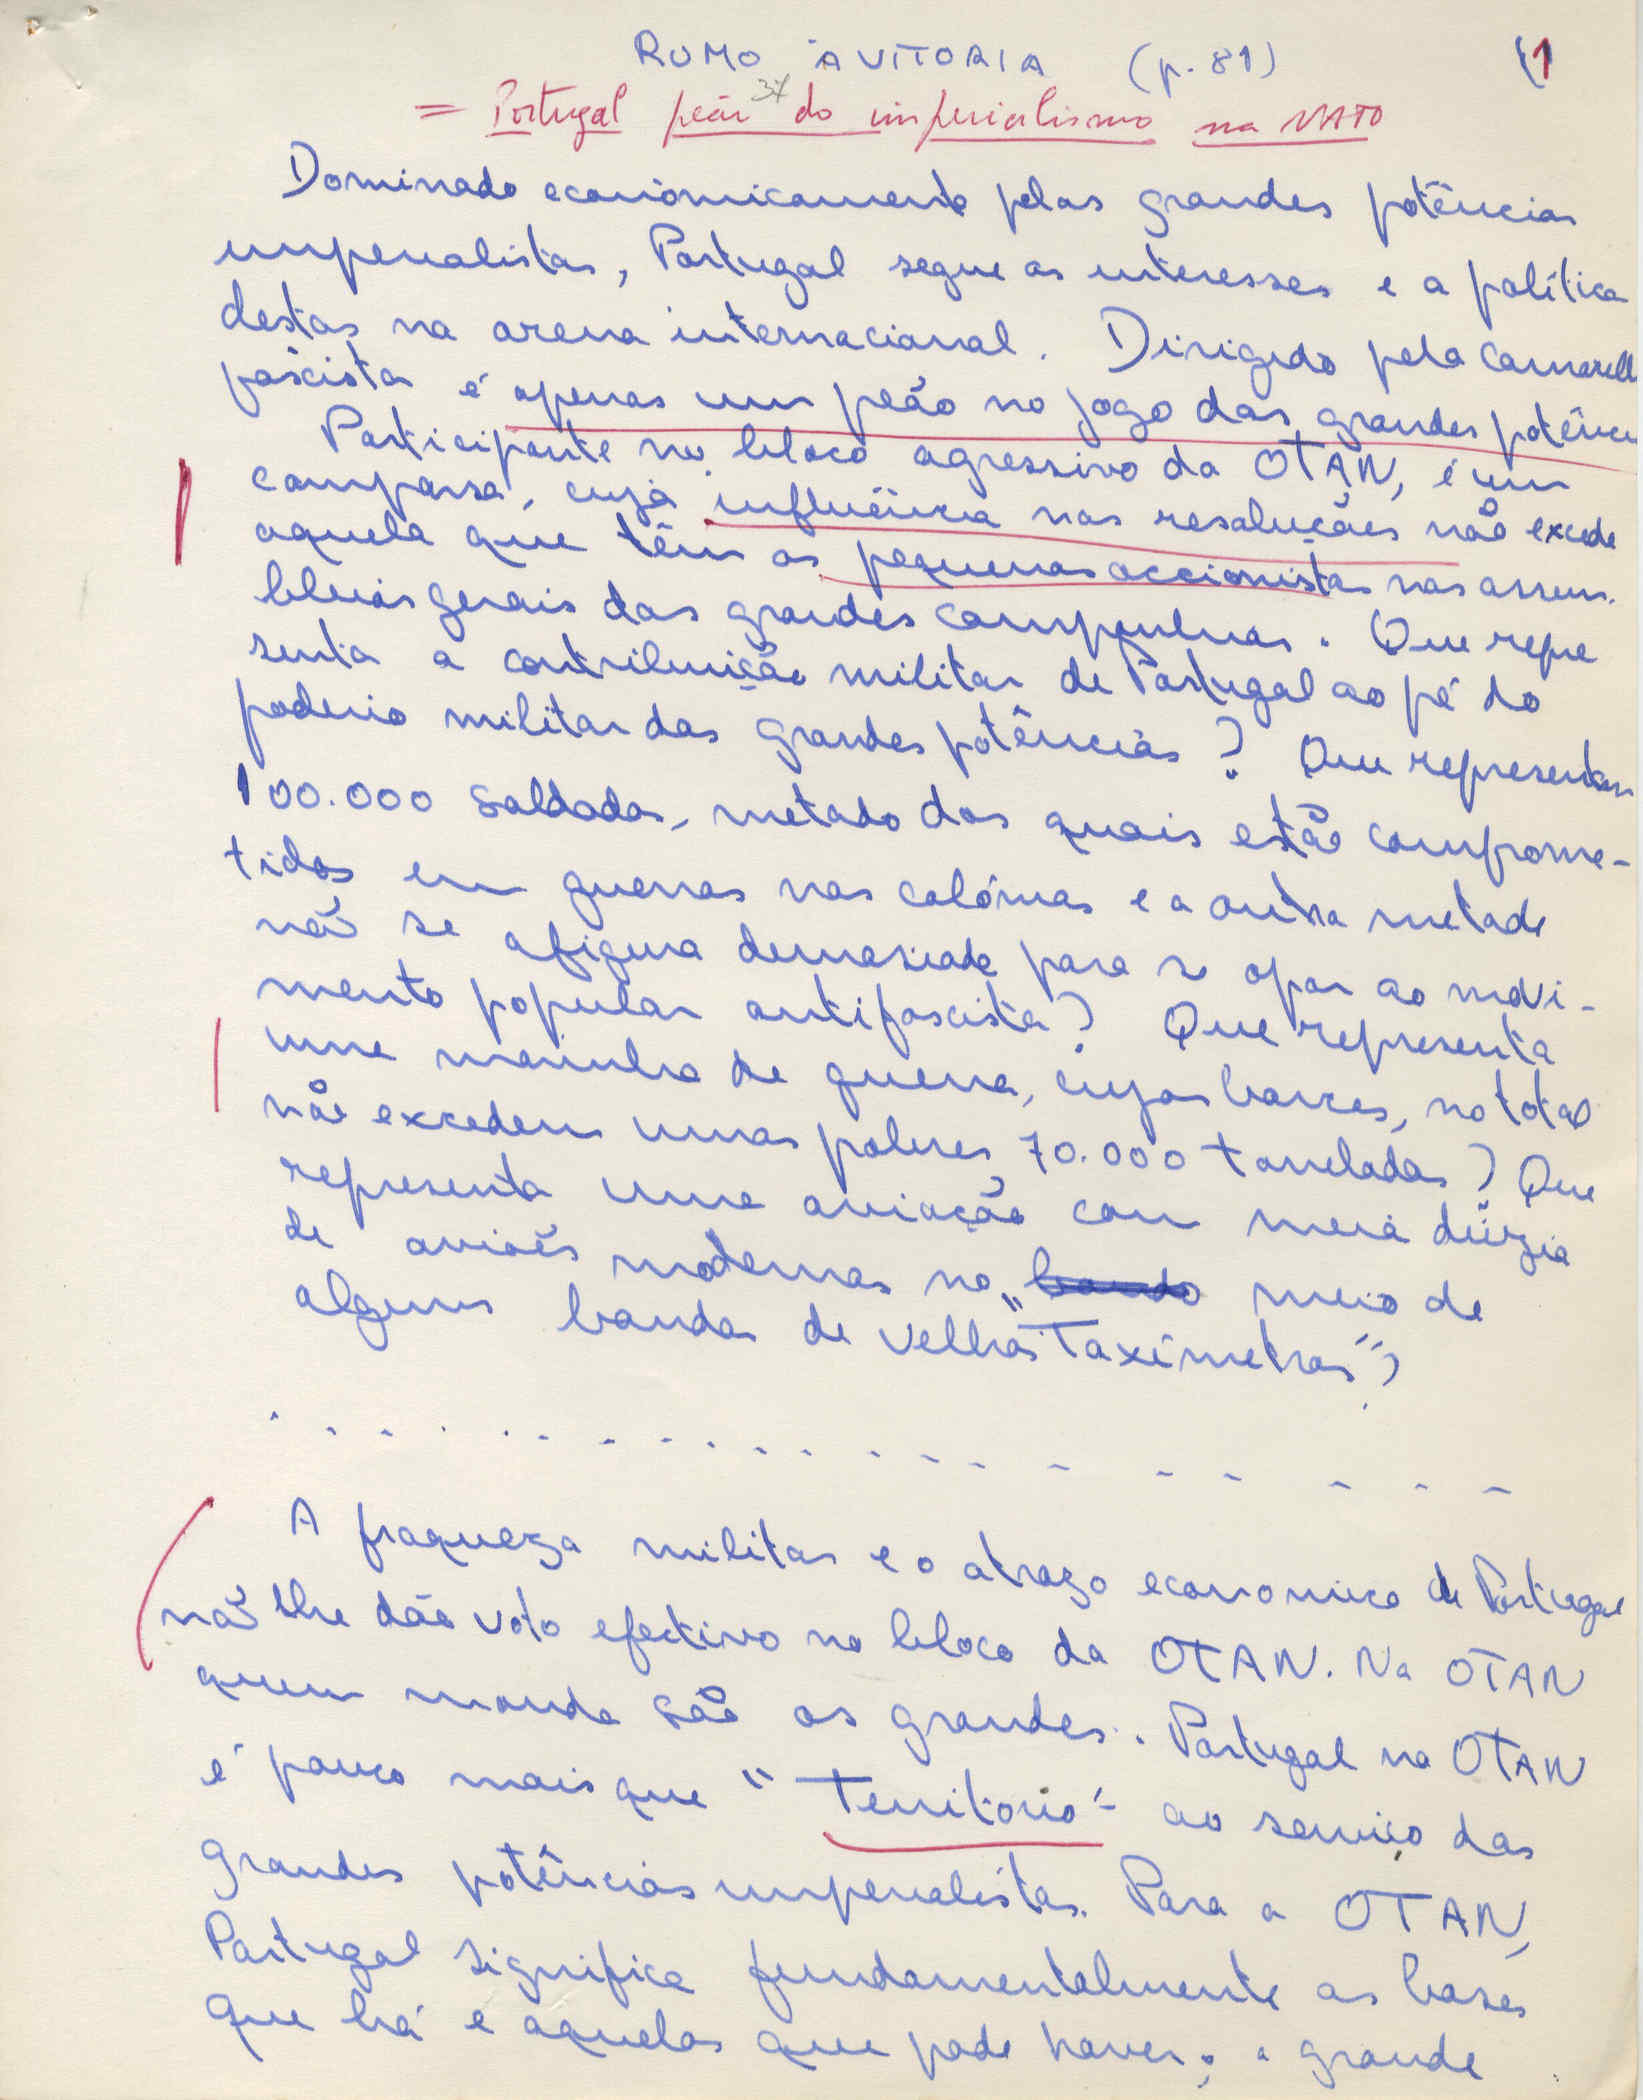 RUMO À VITORIA (p. 81) 1
37
= Portugal peão do imperialismo na NATO
Dominado econòmicamente pelas grandes potências
imperialistas, Portugal segue os interesses e a política
destas na arena internacional. Dirigido pela camarilha
fascista é apenas um peão no jogo das grandes potências
Participante no bloco agressivo da OTAN, é um
comparsa, cuja influência nas resoluções não excede
aquela que têm os pequenos accionistas nas assem-
bleias gerais das grandes companhias. Que repre
senta a contribuição militar de Portugal ao pé do
poderio militar das grandes potências? Que representam
100.000 soldados, metade dos quais estão comprome-
tidos em guerras nas colónias e a outra metade
não se afigura demasiada para se opor ao movi-
mento popular antifascista? Que representa
uma marinha de guerra, cujos barcos, no total
não excedem umas pobres 70.000 toneladas? Que
representa uma aviação com meia dúzia
de aviões modernos no bando meio de
alguns bandos de velhos "Taxímetros"?
. . . . . . . . . . . . . . . . . . . .
A fraqueza militar e o atrazo economico de Portugal
não lhe dão voto efectivo no bloco da OTAN. Na OTAN
quem manda são os grandes. Portugal na OTAN
é pouco mais que "Território" ao serviço das
grandes potências imperialistas. Para a OTAN,
Portugal significa fundamentalmente as bases
que há e aquelas que pode haver; a grande